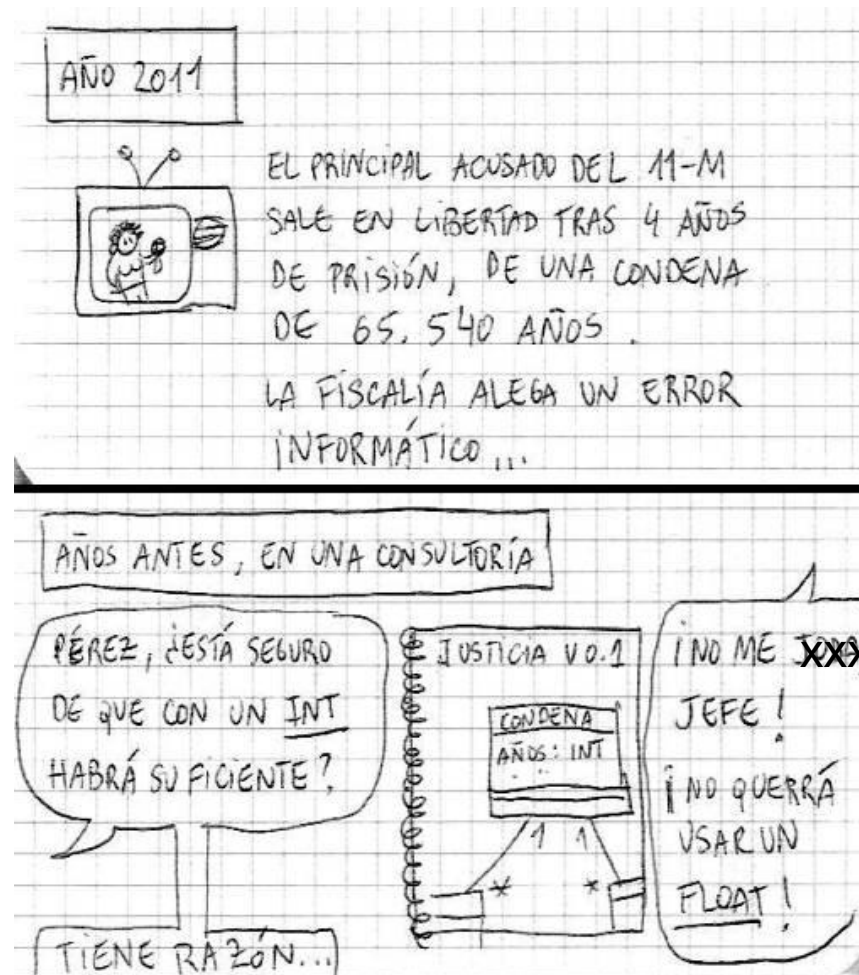 AÑO 2011
EL PRINCIPAL ACUSADO DEL 11-M
SALE EN LIBERTAD TRAS 4 AÑOS
DE PRISIÓN, DE UNA CONDENA
DE 65.540 AÑOS.
LA FISCALÍA ALEGA UN ERROR
INFORMÁTICO...
AÑOS ANTES, EN UNA CONSULTORÍA
PÉREZ, ¿ESTÁ SEGURO
DE QUE CON UN INT
HABRÁ SUFICIENTE?
TIENE RAZÓN...
JUSTICIA V0.1
CONDENA
AÑOS: INT
1 1
* *
¡NO ME
JEFE!
¡NO QUERRÁ
USAR UN
FLOAT!